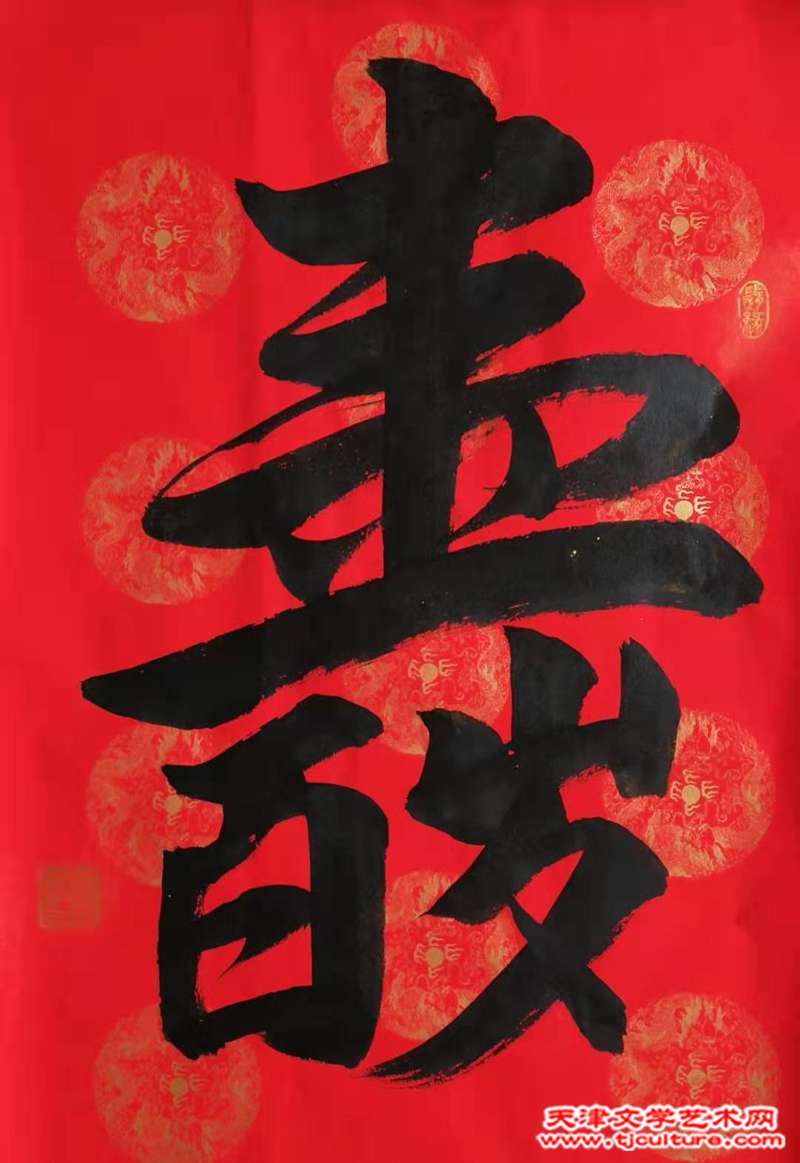 寿
百岁
天津文学艺术网
www.tjculture.com